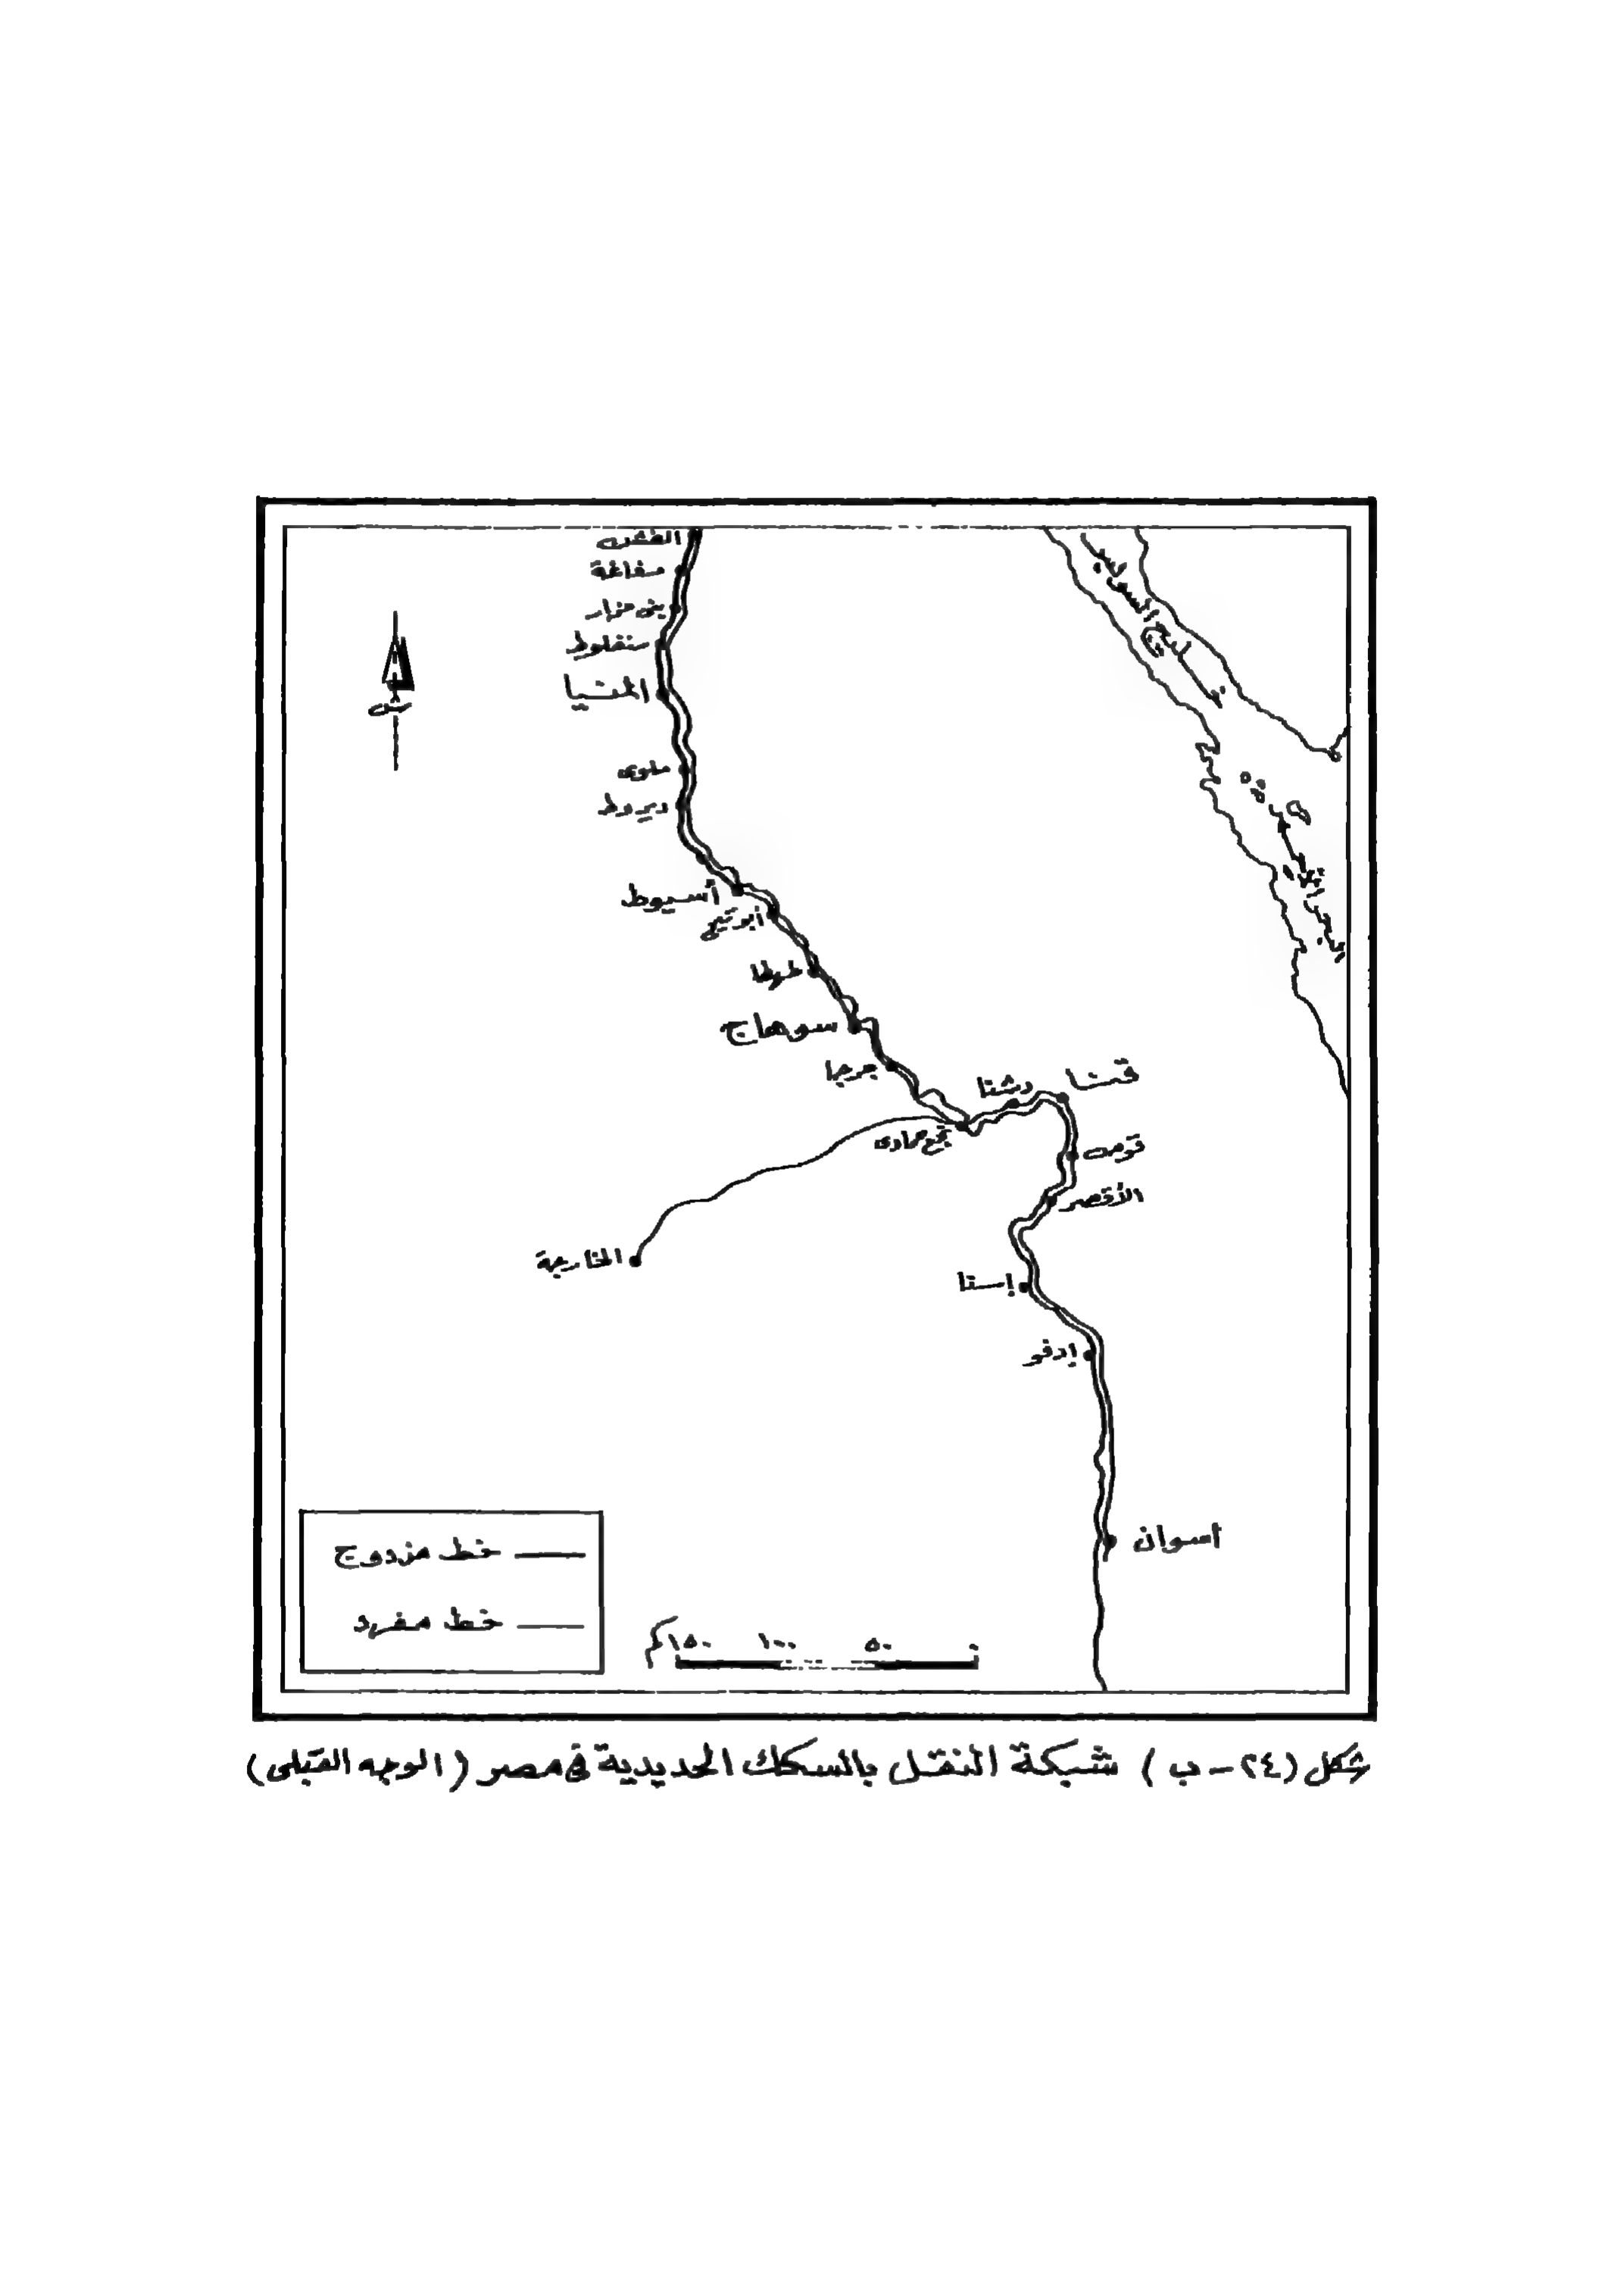 الفشن
مغاغة
بنى مزار
سنفلوط
المنيا
ملوى
ديروط
أسيوط
أبوتيج
طهطا
سوهاج
جرجا
نجع حمادى
دشنا
قنا
قوص
الأقصر
إسنا
إدفو
اسوان
الخارجة
خليج السويس
البحر الأحمر
س
خط مزدوج
خط مفرد
٠ ٥٠ ١٠٠ ١٥٠ كم
شكل (٢٤ - ب ) شبكة النقل بالسكك الحديدية فى مصر (الوجه القبلى)